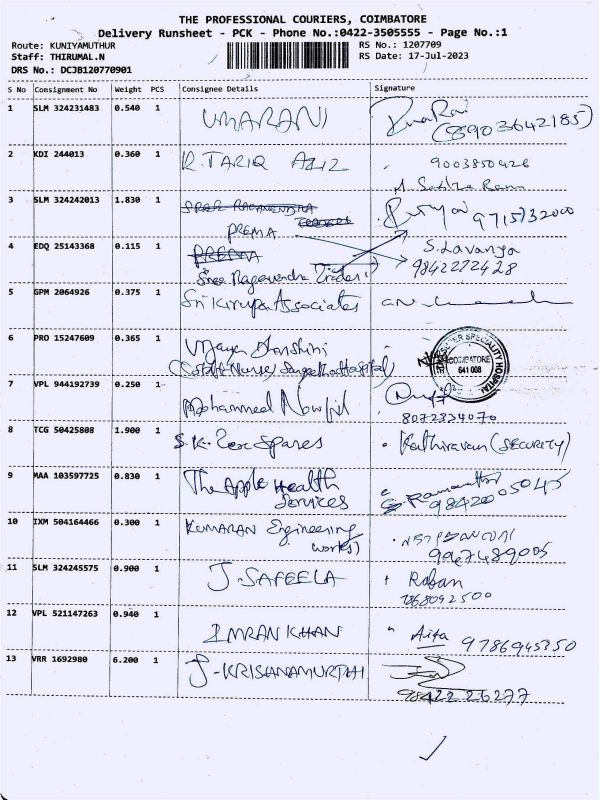 THE PROFESSIONAL COURIERS, COIMBATORE
Delivery Runsheet - PCK - Phone No.:0422-3505555 - Page No.:1
Route: KUNIYAMUTHUR
RS No.: 1207709
Staff: THIRUMAL.N
RS Date: 17-Jul-2023
DRS No.: DCJB120770901
S No Consignment No Weight PCS Consignee Details Signature
1 SLM 324231483 0.540 1 UMARANI
(8903642185)
2 KDI 244013 0.360 1 R. TARIQ AZIZ 9003850426
3 SLM 324242013 1.830 1
PREMA 9715732000
4 EDQ 25143368 0.115 1 PREMA S. Lavanya
Sree Ragavendra Traders 9842272428
5 GPM 2064926 0.375 1 Sri Kirupa Associates
6 PRO 15247609 0.365 1 Vijaya Dharshini
(Staff Nurse Hospital)
SUPER SPECIALITY HOSPITAL
COIMBATORE
641 008
7 VPL 944192739 0.250 1 Mohammed Nowfil
8072334070
8 TCG 50425808 1.900 1 S.K. Zerox Spares Kathiravan (SECURITY)
9 MAA 103597725 0.830 1 The Apple Health
Services 9842005045
10 IXM 504164466 0.300 1 KUMARAN Engineering
works) 9967489005
11 SLM 324245575 0.900 1 J. SAFEELA Raban
7868092500
12 VPL 521147263 0.940 1 IMRAN KHAN 9786945350
13 VRR 1692980 6.200 1 J-KRISHNAMURTHI
9842226277